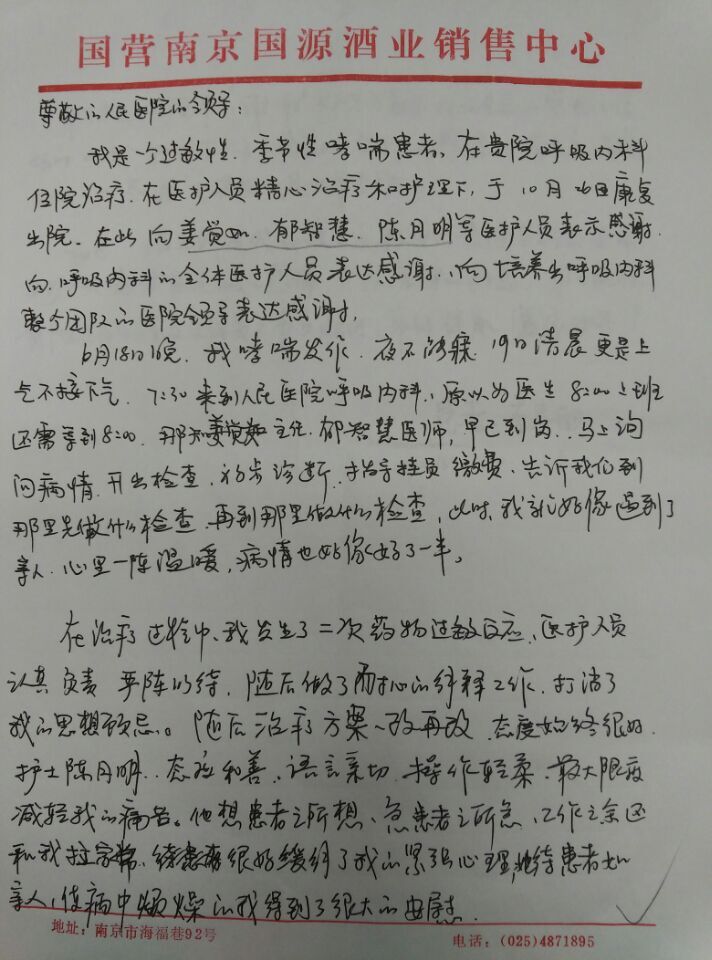 国营南京国源酒业销售中心
尊敬的人民医院的领导：
我是一个过敏性、季节性哮喘患者，在贵院呼吸内科
住院治疗，在医护人员精心治疗和护理下，于10月26日康复
出院。在此向姜觉如、郁智慧、陈月明等医护人员表示感谢，
向呼吸内科的全体医护人员表达感谢，向培养出呼吸内科
整个团队的医院领导表达感谢。
6月18日晚，我哮喘发作，夜不能寐，19日清晨更是上
气不接下气，7:30来到人民医院呼吸内科，原以为医生8:00上班
还需等到8:00，那知姜觉如主任、郁智慧医师，早已到岗，马上询
问病情，开出检查，初步诊断，指导挂员缴费，告诉我们到
那里先做什么检查，再到那里做什么检查，此时，我就好像遇到了
亲人，心里一阵温暖，病情也好像好了一半。
在治疗过程中，我发生了二次药物过敏反应，医护人员
认真负责，严阵以待，随后做了耐心的解释工作，打消了
我的思想顾忌。随后治疗方案一改再改，态度始终很好，
护士陈月明，态度和善，语言亲切，操作轻柔，最大限度
减轻我的痛苦。他想患者之所想，急患者之所急，工作之余还
和我拉家常，很好缓解了我的紧张心理，她待患者如
亲人，使病中烦燥的我得到了很大的安慰。
地址：南京市海福巷92号
电话：(025)4871895